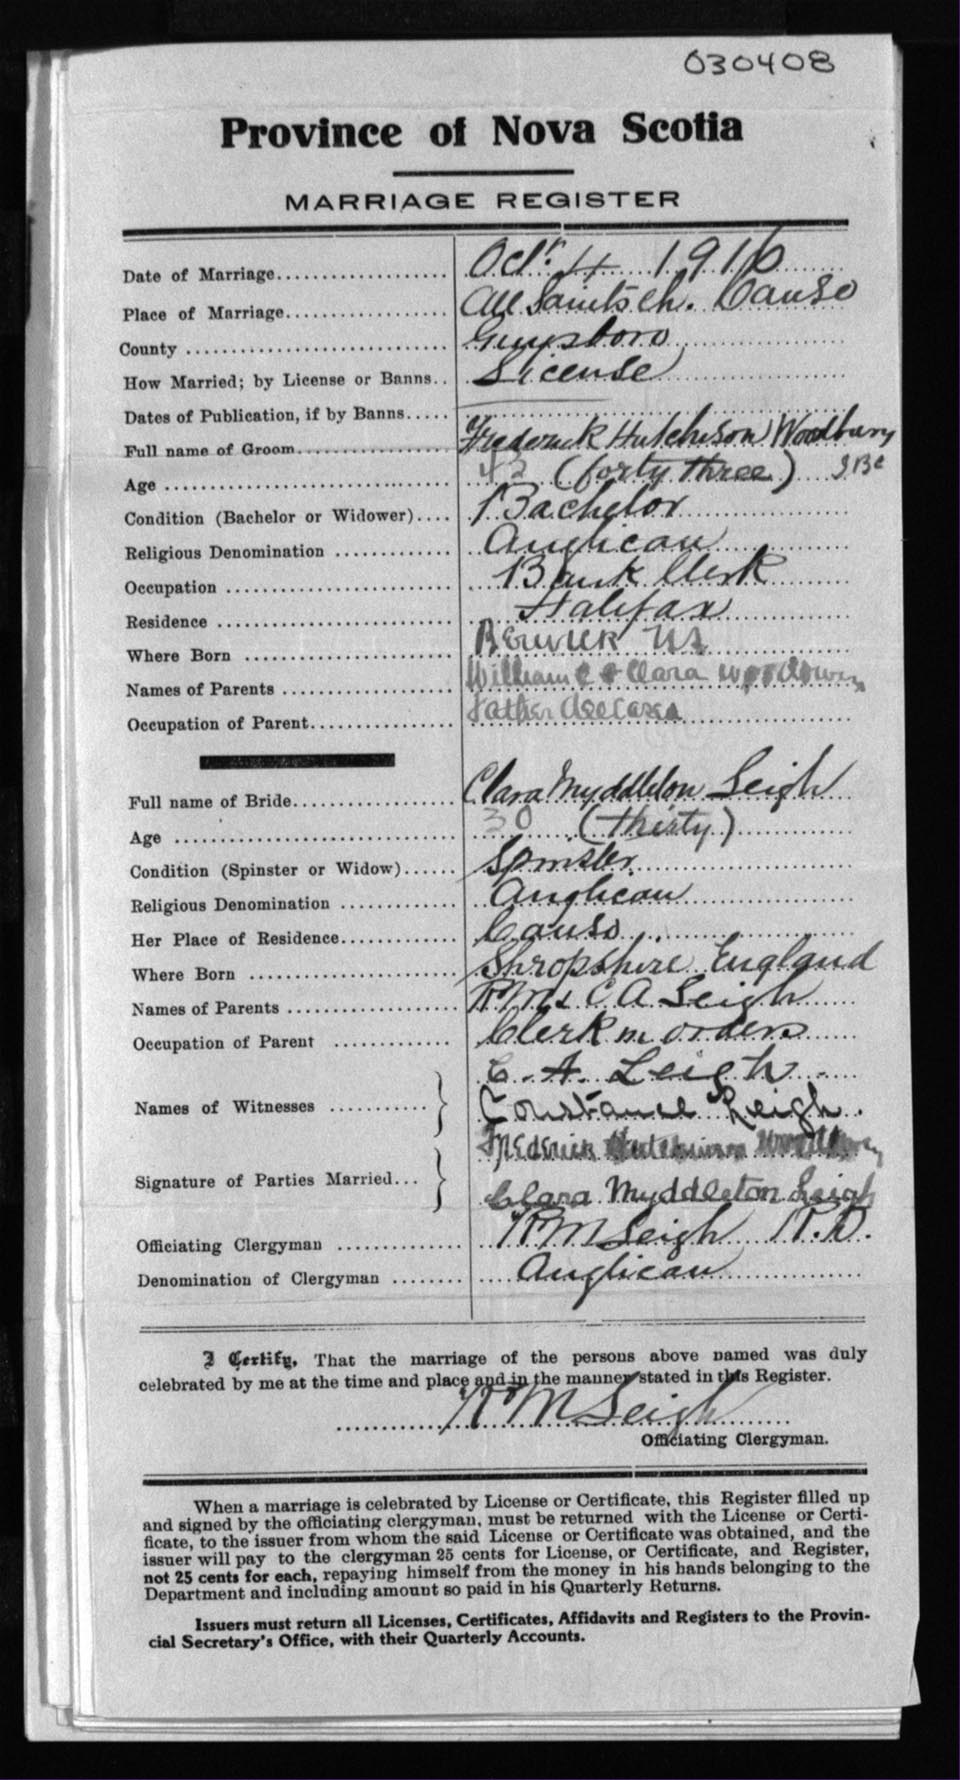 030408
Province of Nova Scotia
MARRIAGE REGISTER
Date of Marriage Octr 4 1916
Place of Marriage All Saints ch. Canso
County Guysboro
How Married; by License or Banns License
Dates of Publication, if by Banns
Full name of Groom Frederick Hutchison Woodbury
Age 43 (forty three)
Condition (Bachelor or Widower) Bachelor
Religious Denomination Anglican
Occupation Bank Clerk
Residence Halifax
Where Born Berwick NS
Names of Parents William C & Clara Woodbury
Occupation of Parent Father deceased
Full name of Bride Clara Myddleton Leigh
Age 30 (thirty)
Condition (Spinster or Widow) Spinster
Religious Denomination Anglican
Her Place of Residence Canso
Where Born Shropshire England
Names of Parents RM & C A Leigh
Occupation of Parent Clerk in orders
C. A. Leigh
Names of Witnesses Constance Leigh.
Frederick Hutchinson Woodbury
Signature of Parties Married Clara Myddleton Leigh
Officiating Clergyman RM Leigh R.D.
Denomination of Clergyman Anglican
I Certify, That the marriage of the persons above named was duly
celebrated by me at the time and place and in the manner stated in this Register.
RM Leigh
Officiating Clergyman.
When a marriage is celebrated by License or Certificate, this Register filled up
and signed by the officiating clergyman, must be returned with the License or Certi-
ficate, to the issuer from whom the said License or Certificate was obtained, and the
issuer will pay to the clergyman 25 cents for License, or Certificate, and Register,
not 25 cents for each, repaying himself from the money in his hands belonging to the
Department and including amount so paid in his Quarterly Returns.
Issuers must return all Licenses, Certificates, Affidavits and Registers to the Provin-
cial Secretary's Office, with their Quarterly Accounts.